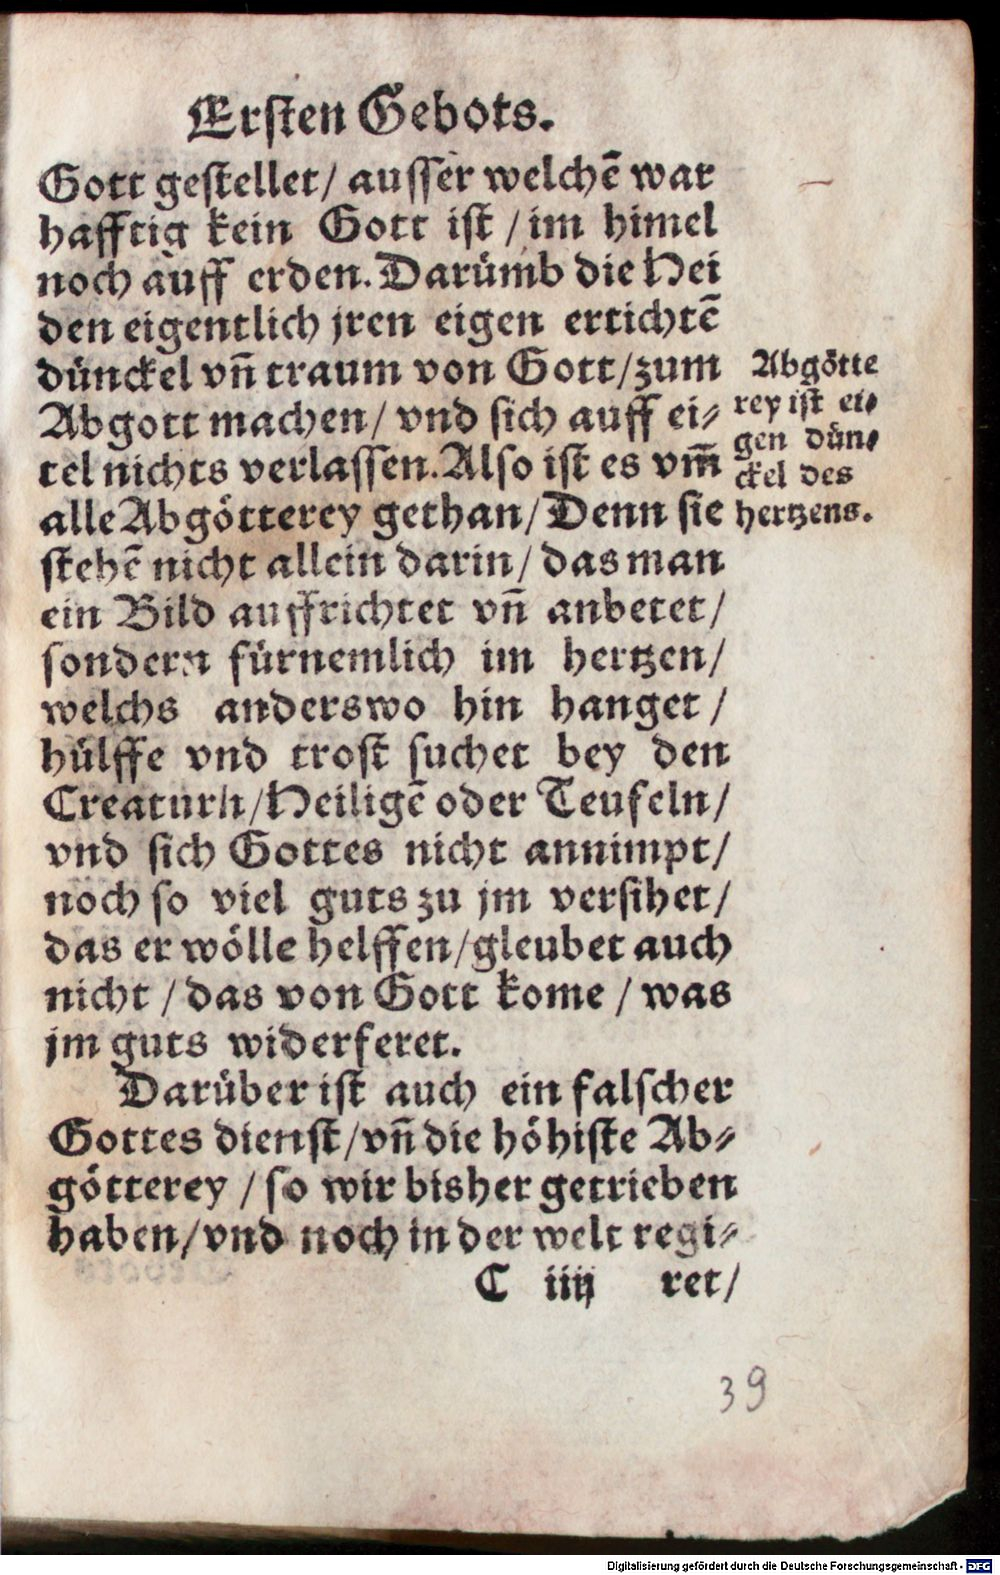 Ersten Gebots.
Gott gestellet/ ausser welchẽ war
hafftig kein Gott ist / im himel
noch auff erden. Darümb die Hei
den eigentlich jren eigen ertichtẽ
dünckel vñ traum von Gott/ zum
Abgott machen/ vnd sich auff ei⸗
tel nichts verlassen. Also ist es vm̃
alle Abgötterey gethan/ Denn sie
stehẽ nicht allein darin/ das man
ein Bild auffrichtet vñ anbetet/
sondern fürnemlich im hertzen/
welchs anderswo hin hanget /
hülffe vnd trost suchet bey den
Creaturn/ Heiligẽ oder Teufeln/
vnd sich Gottes nicht annimpt/
noch so viel guts zu jm versihet/
das er wölle helffen/ gleubet auch
nicht / das von Gott kome / was
jm guts widerferet.
Darüber ist auch ein falscher
Gottes dienst/ vñ die höhiste Ab⸗
götterey / so wir bisher getrieben
haben/ vnd noch in der welt regi⸗
C iiij ret/
Abgötte
rey ist ei⸗
gen dün⸗
ckel des
hertzens.
39
Digitalisierung gefördert durch die Deutsche Forschungsgemeinschaft - DFG